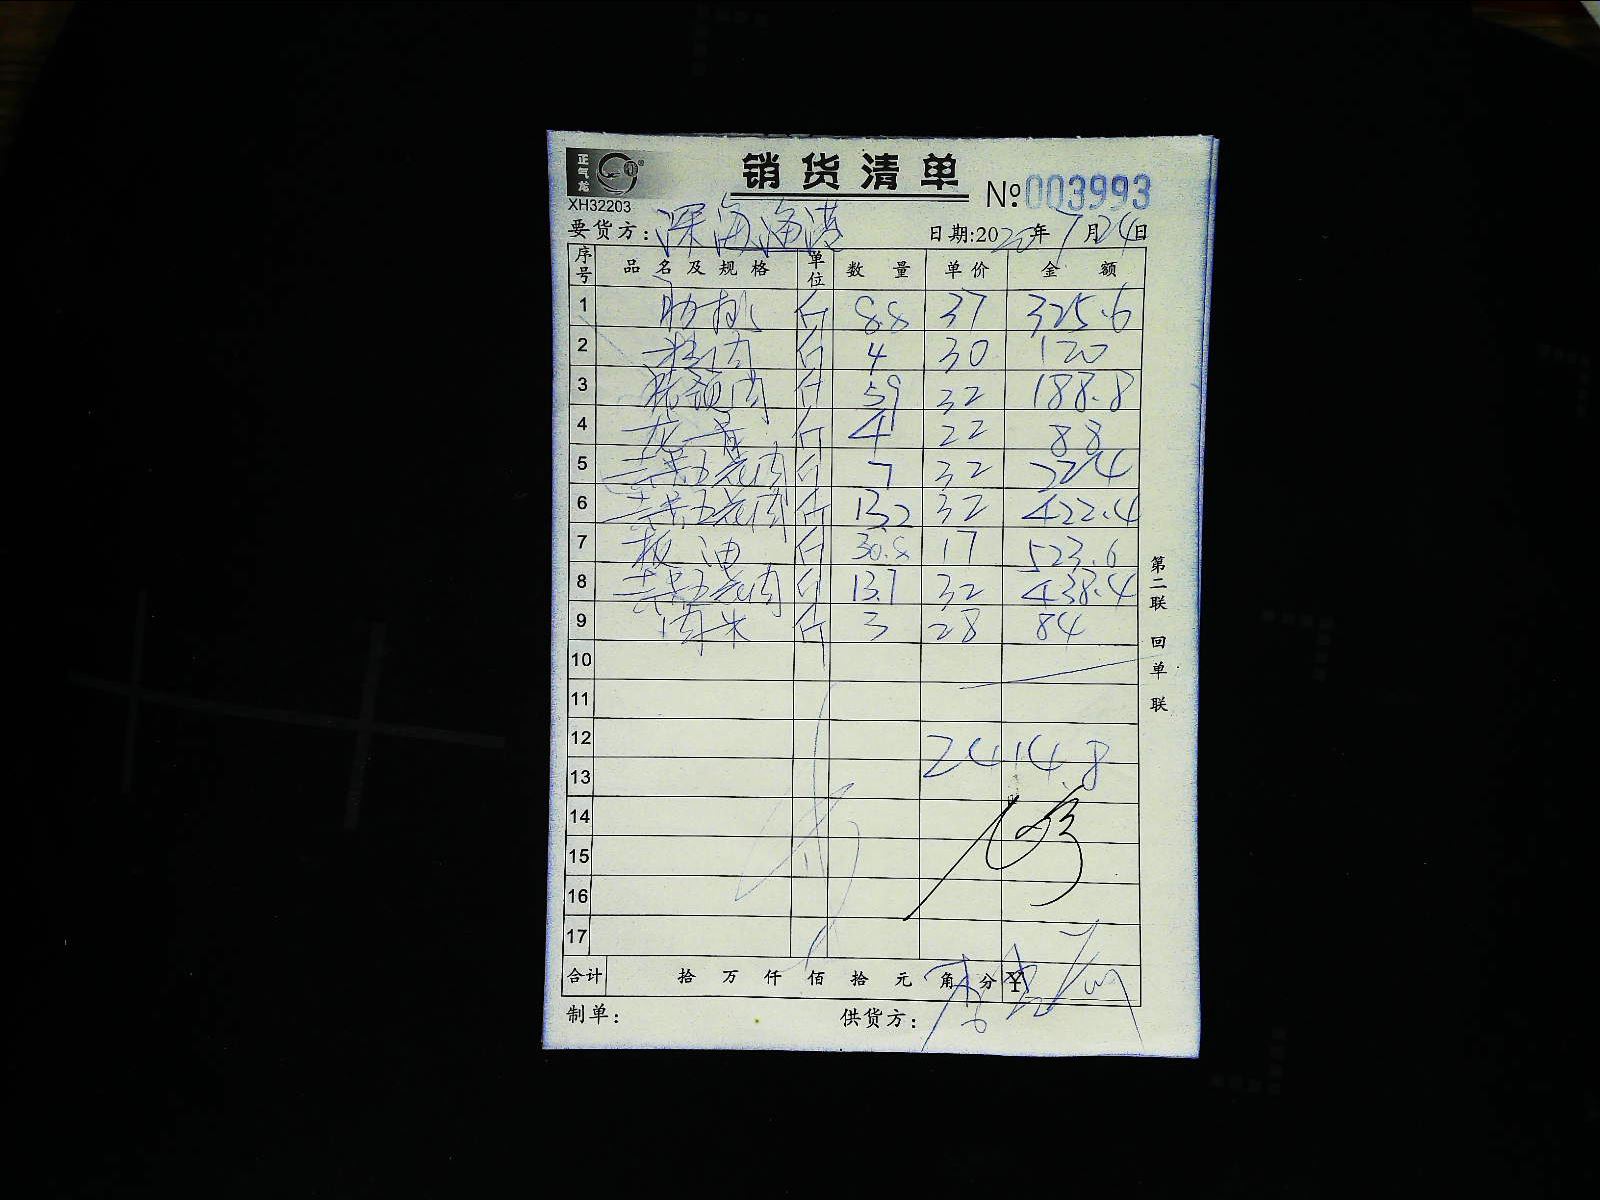 正气龙
销货清单
XH32203
№003993
要货方:深海渔港 日期:2020年7月24日
序号 品名及规格 单位 数量 单价 金额
1 肋排 斤 8.8 37 325.6
2 斤 4 30 120
3 肉 斤 5.9 32 188.8
4 龙骨 斤 4 22 88
5 五花肉 斤 7 32 224
6 五花肉 斤 13.2 32 422.4
7 板油 斤 30.8 17 523.6
8 五花肉 斤 13.7 32 438.4
9 肉米 斤 3 28 84
10
11
12
2414.8
13
14
15
16
17
合计 拾 万 仟 佰 拾 元 角 分 ¥
制单: 供货方:
第二联 回单联